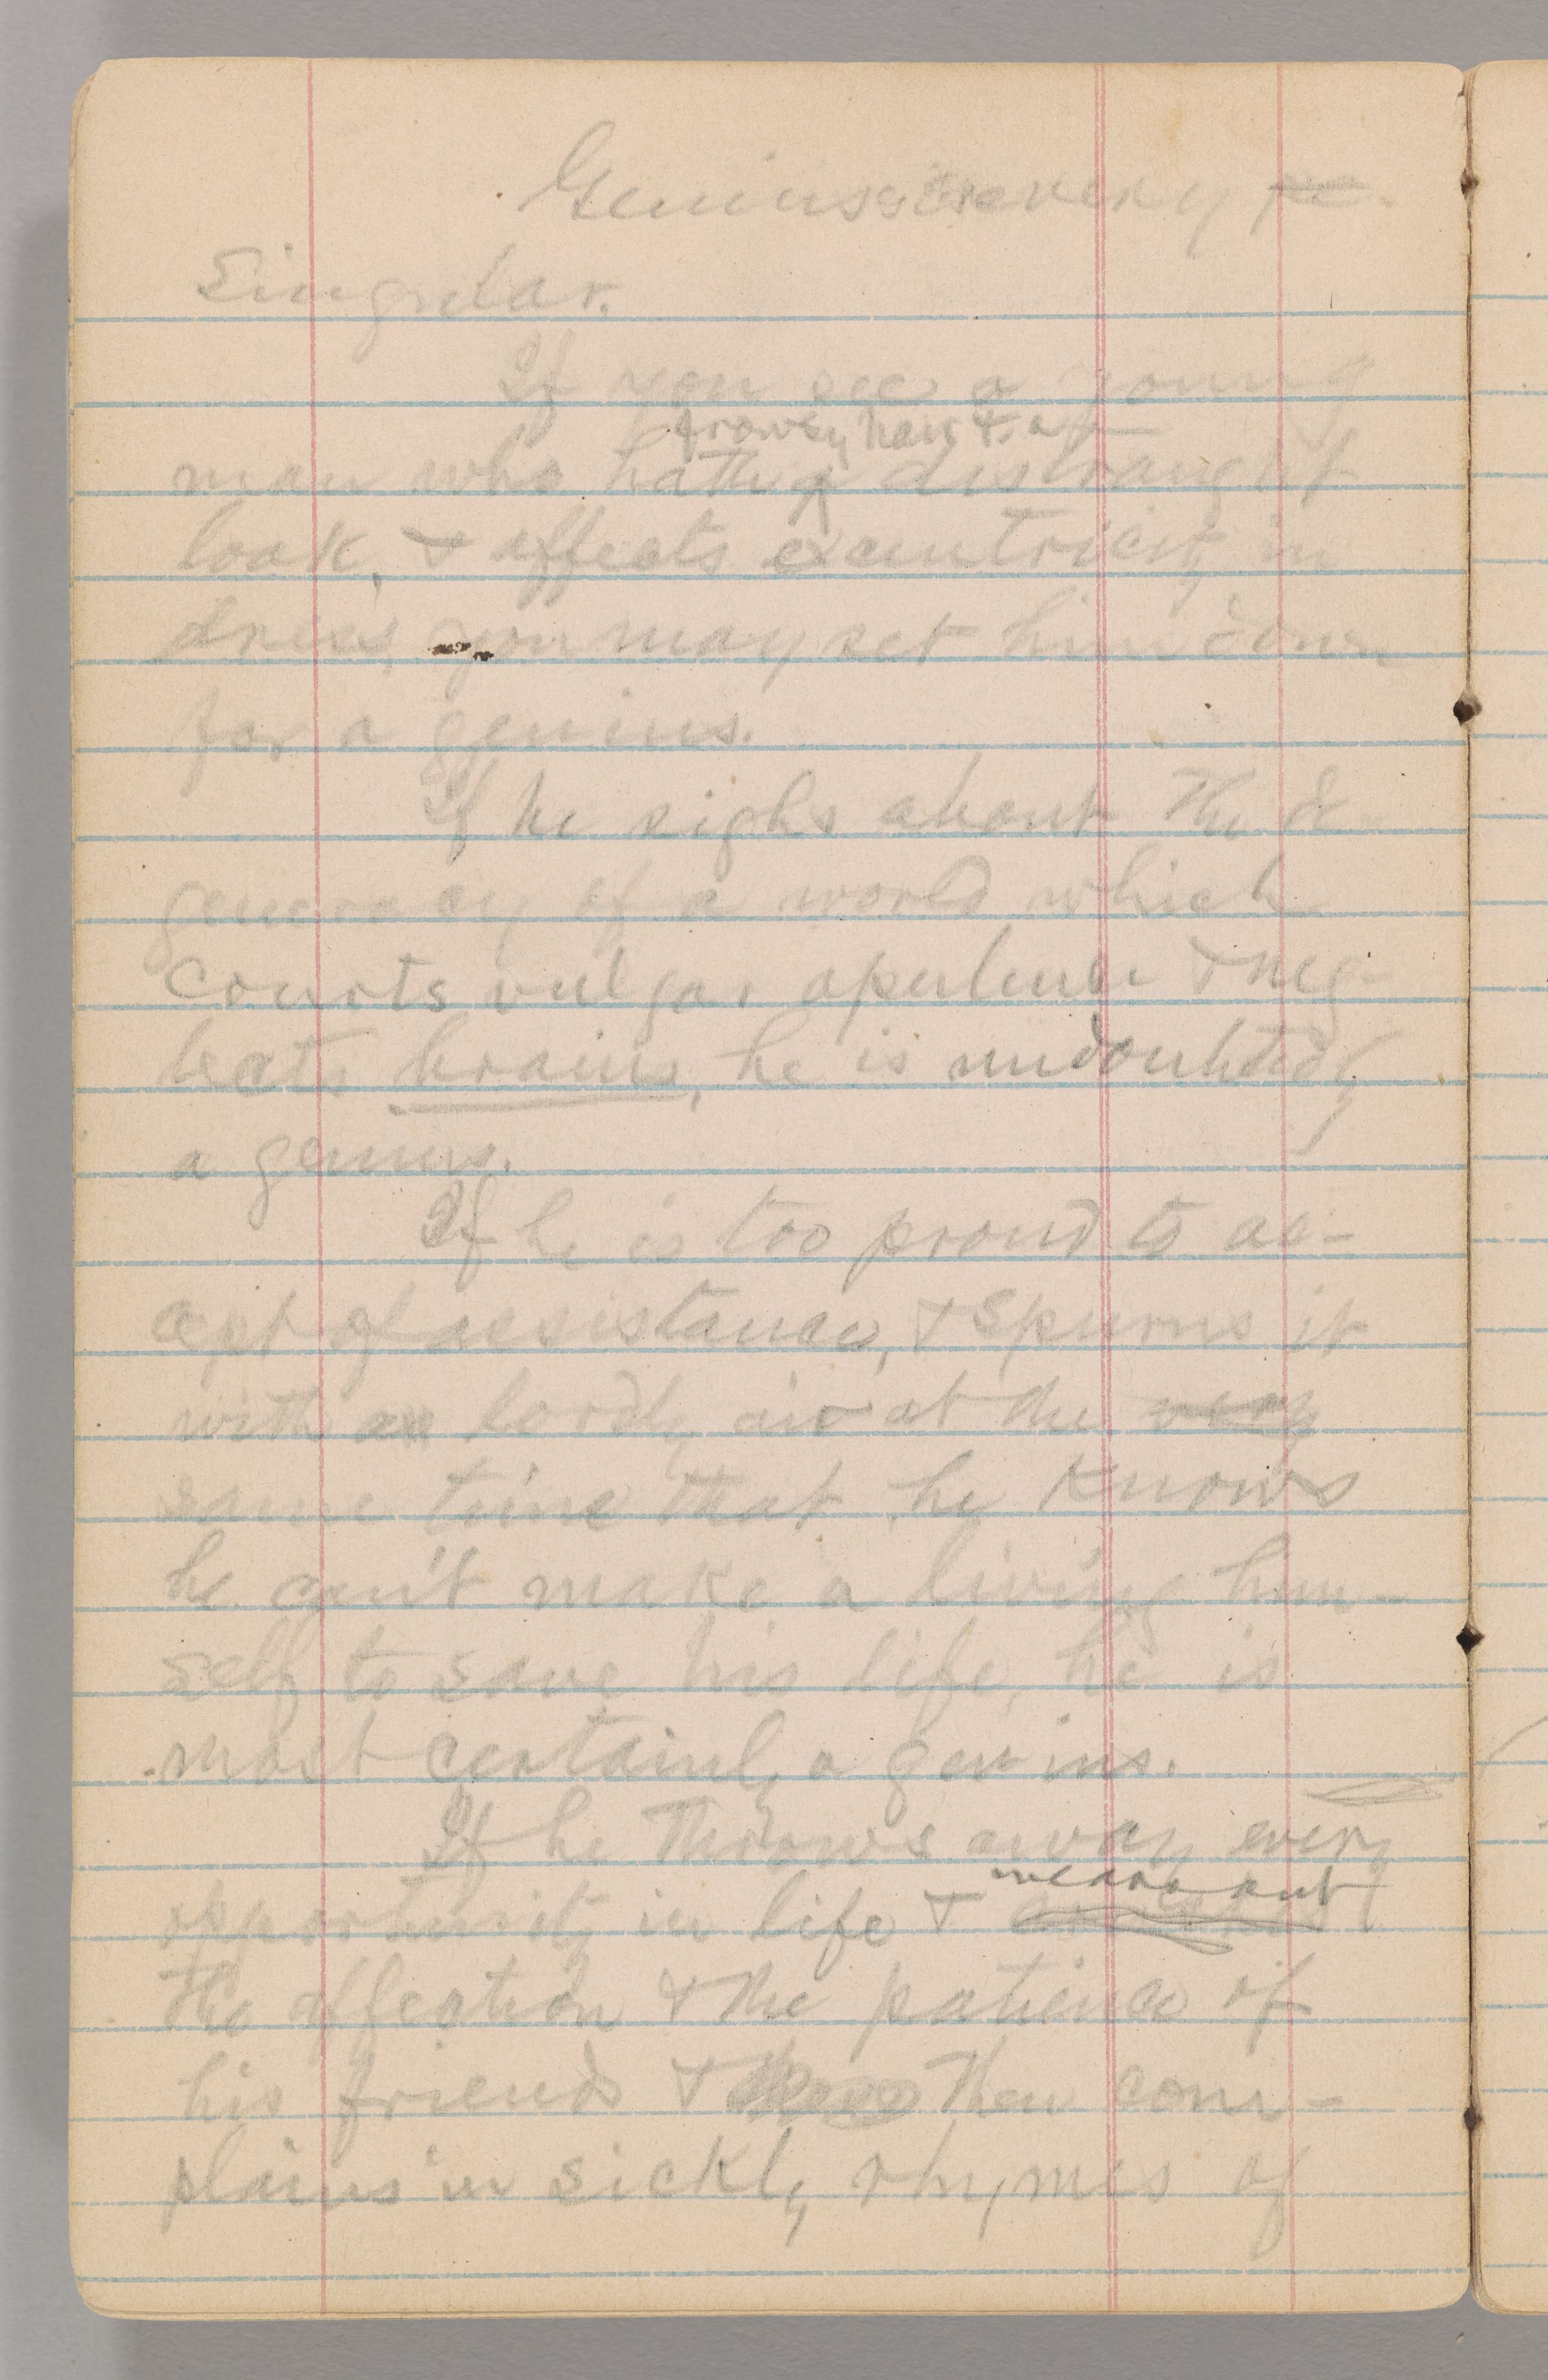 Geniuses are very pe-
Singular.
If you see a young
frowsy hair & a
man who hath a distraught
look, & affects excentricity in
dress, you may set him down
for a genius.
If he sighs about the de-
generacy of a world which
courts vulgar opulence & neg-
lects brains, he is undoubtedly
a genius.
If he is too proud to ac-
cept of assistance, & spurns it
with a lordly air at the very
same time that he knows
he can't make a living him-
self to save his life, he is
most certainly a genius.
If he throws away every
wears out
opportunity in life &
the affection & the patience of
his friends & then com-
plains in sickly rhymes of